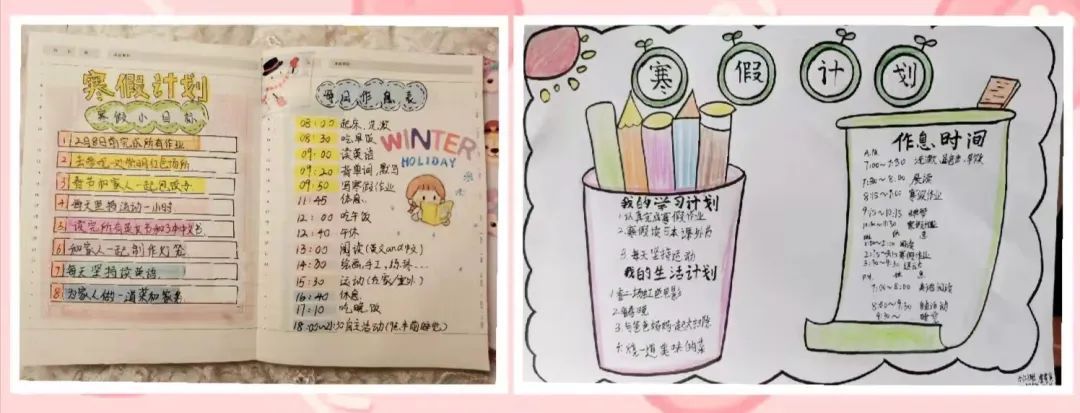 寒假计划
寒假小目标
1 2月8日前完成所有作业
2 去参观一处常明红色场所
3 春节和家人一起包饺子
4 每天坚持运动一小时
5 读完所有英文书和3本中文书
6 和家人一起制作灯笼
7 每天坚持读英语
8 为家人做一道菜和家务
每日作息表
08:00 起床、洗漱
08:30 吃早饭
09:00 读英语
09:20 背单词、默写
09:50 写寒假作业
11:45 休息
12:00 吃午饭
12:40 午休
13:00 阅读(英文and中文)
14:30 绘画,手工,练琴...
15:30 运动(在家/室外)
16:40 休息
17:10 吃晚饭
WINTER
HOLIDAY
寒假计划
我的学习计划
1.认真完成寒假作业
2.寒假读5本课外书
3.每天坚持运动
我的生活计划
1.看一场红色电影
3.与爸爸妈妈一起大扫除
4.烧一道美味的菜
作息时间
7:00~7:30 洗漱 早饭
7:30~8:00 晨读
8:15~9:00 寒假作业
休息
寒假作业
休息
7:00~8:00 英语阅读
9:30~ 睡觉